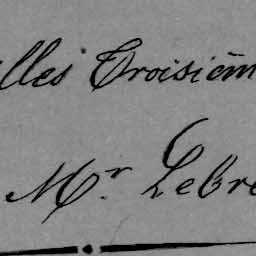 lles Troisièm
Mr. Lebre